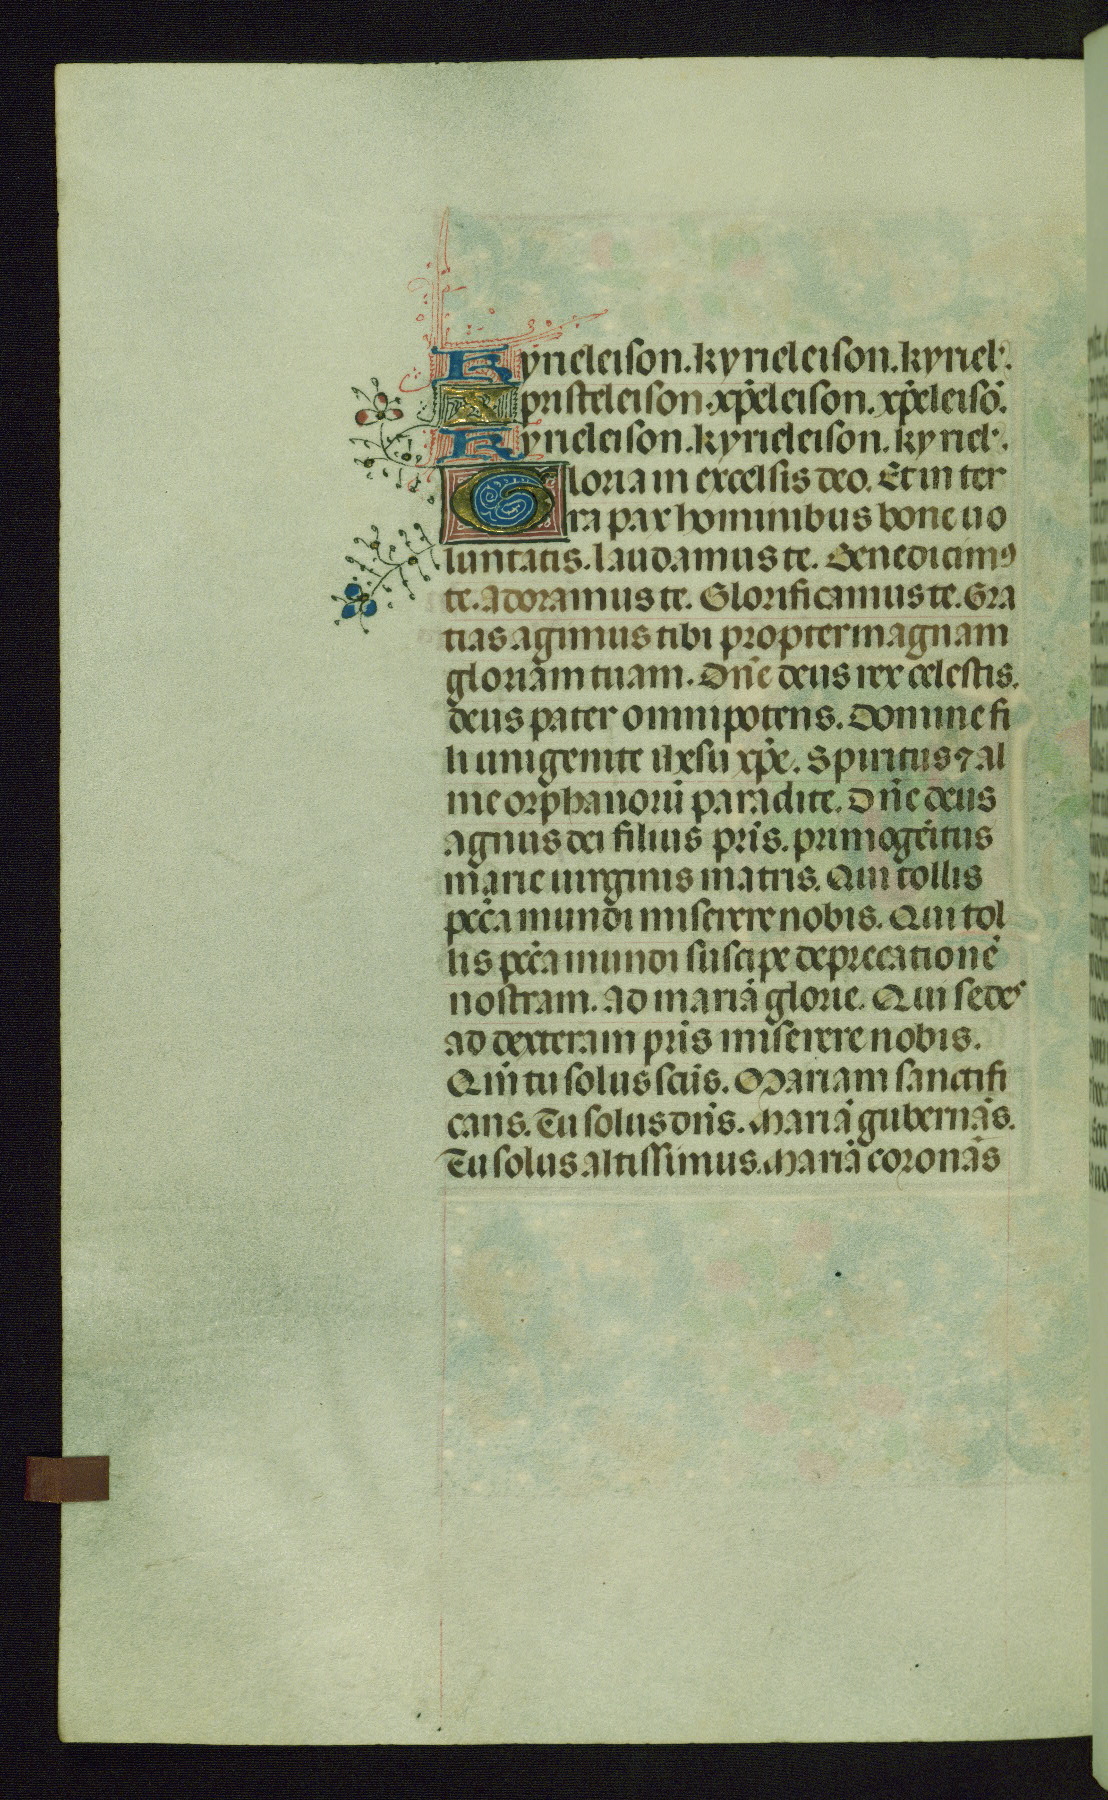 Kyrieleison. kyrieleison. kyriel'.
Xpristeleison. xp̄eleison. xp̄eleisō.
Kyrieleison. kyrieleison. kyriel'.
Gloria in excelsis deo. Et in ter
ra pax hominibus bone uo
luntatis. laudamus te. Benedicimꝰ
te. adoramus te. Glorificamus te. Gra
tias agimus tibi propter magnam
gloriam tuam. Dn̄e deus rex celestis.
deus pater omnipotens. Domine fi
li unigenite ihesu xp̄e. Spiritus ⁊ al
me orphanorū paradite. Dn̄e deus
agnus dei filius pr̄is. primogēitus
marie uirginis matris. Qui tollis
pecc̄a mundi miserere nobis. Qui tol
lis pecc̄a mundi suscipe deprecationē
nostram. ad mariā glorie. Qui sedes
ad dexteram pr̄is miserere nobis.
Qm̄ tu solus sc̄us. Mariam sanctifi
cans. Tu solus dn̄s. Mariā gubernās.
Tu solus altissimus. Mariā coronās